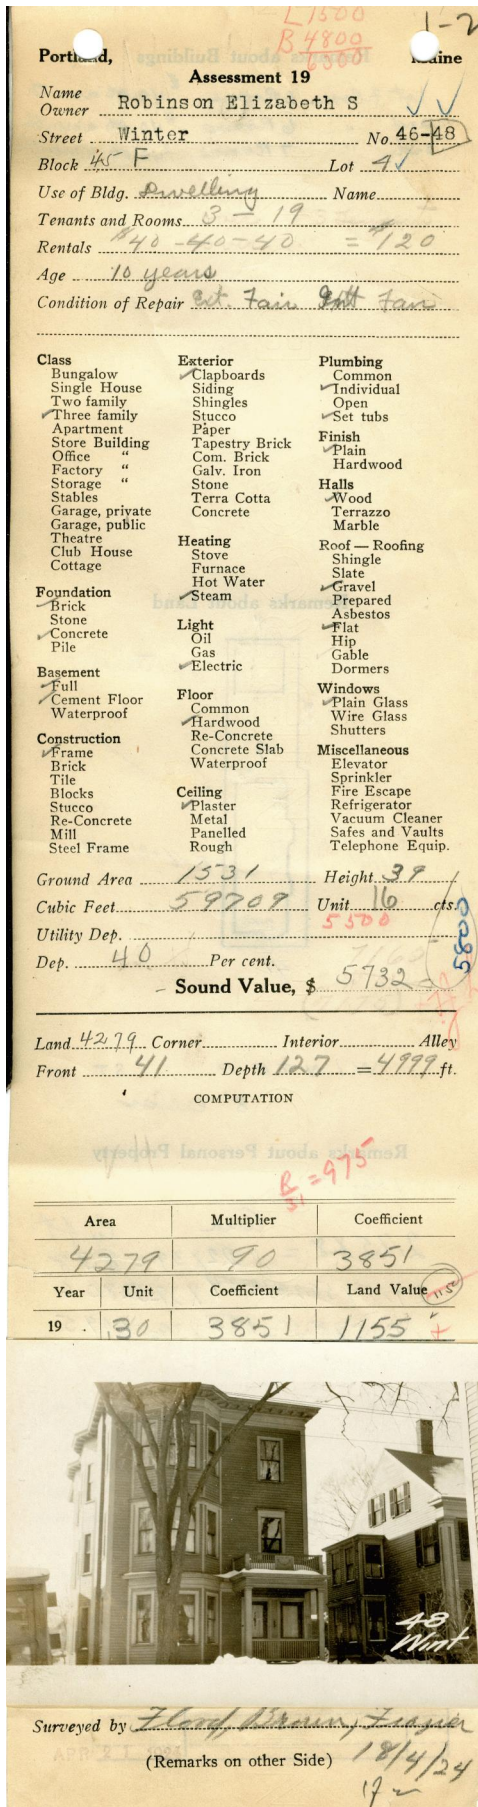 L 1500
1-2
B 4800
6300
Portland, Maine
Assessment 19
Name
Owner Robinson Elizabeth S
Street Winter No. 46-48
Block 45 F Lot 4
Use of Bldg. Dwelling Name
Tenants and Rooms 3 - 19
Rentals $40 -40-40 = $120
Age 10 years
Condition of Repair Ext. Fair Int Fair
Class
Bungalow
Single House
Two family
Three family
Apartment
Store Building
Office "
Factory "
Storage "
Stables
Garage, private
Garage, public
Theatre
Club House
Cottage
Foundation
Brick
Stone
Concrete
Pile
Basement
Full
Cement Floor
Waterproof
Construction
Frame
Brick
Tile
Blocks
Stucco
Re-Concrete
Mill
Steel Frame
Exterior
Clapboards
Siding
Shingles
Stucco
Paper
Tapestry Brick
Com. Brick
Galv. Iron
Stone
Terra Cotta
Concrete
Heating
Stove
Furnace
Hot Water
Steam
Light
Oil
Gas
Electric
Floor
Common
Hardwood
Re-Concrete
Concrete Slab
Waterproof
Ceiling
Plaster
Metal
Panelled
Rough
Plumbing
Common
Individual
Open
Set tubs
Finish
Plain
Hardwood
Halls
Wood
Terrazzo
Marble
Roof — Roofing
Shingle
Slate
Gravel
Prepared
Asbestos
Flat
Hip
Gable
Dormers
Windows
Plain Glass
Wire Glass
Shutters
Miscellaneous
Elevator
Sprinkler
Fire Escape
Refrigerator
Vacuum Cleaner
Safes and Vaults
Telephone Equip.
Ground Area 1531 Height 39
Cubic Feet 59709 Unit 16 cts.
5500
5800
Utility Dep.
Dep. 40 Per cent.
Sound Value, $ 5732
Land 4279 Corner Interior Alley
Front 41 Depth 127 = 4999 ft.
COMPUTATION
R/31 = 975
Area Multiplier Coefficient
4279 90 3851
Year Unit Coefficient Land Value 1150
19 . .30 3851 1155
48
Wint
Surveyed by Flood, Brown, Frazier
(Remarks on other Side) 18/4/24